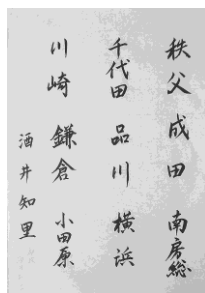 秩父 成田 南房総
千代田 品川 横浜
川崎 鎌倉 小田原
酒井知里